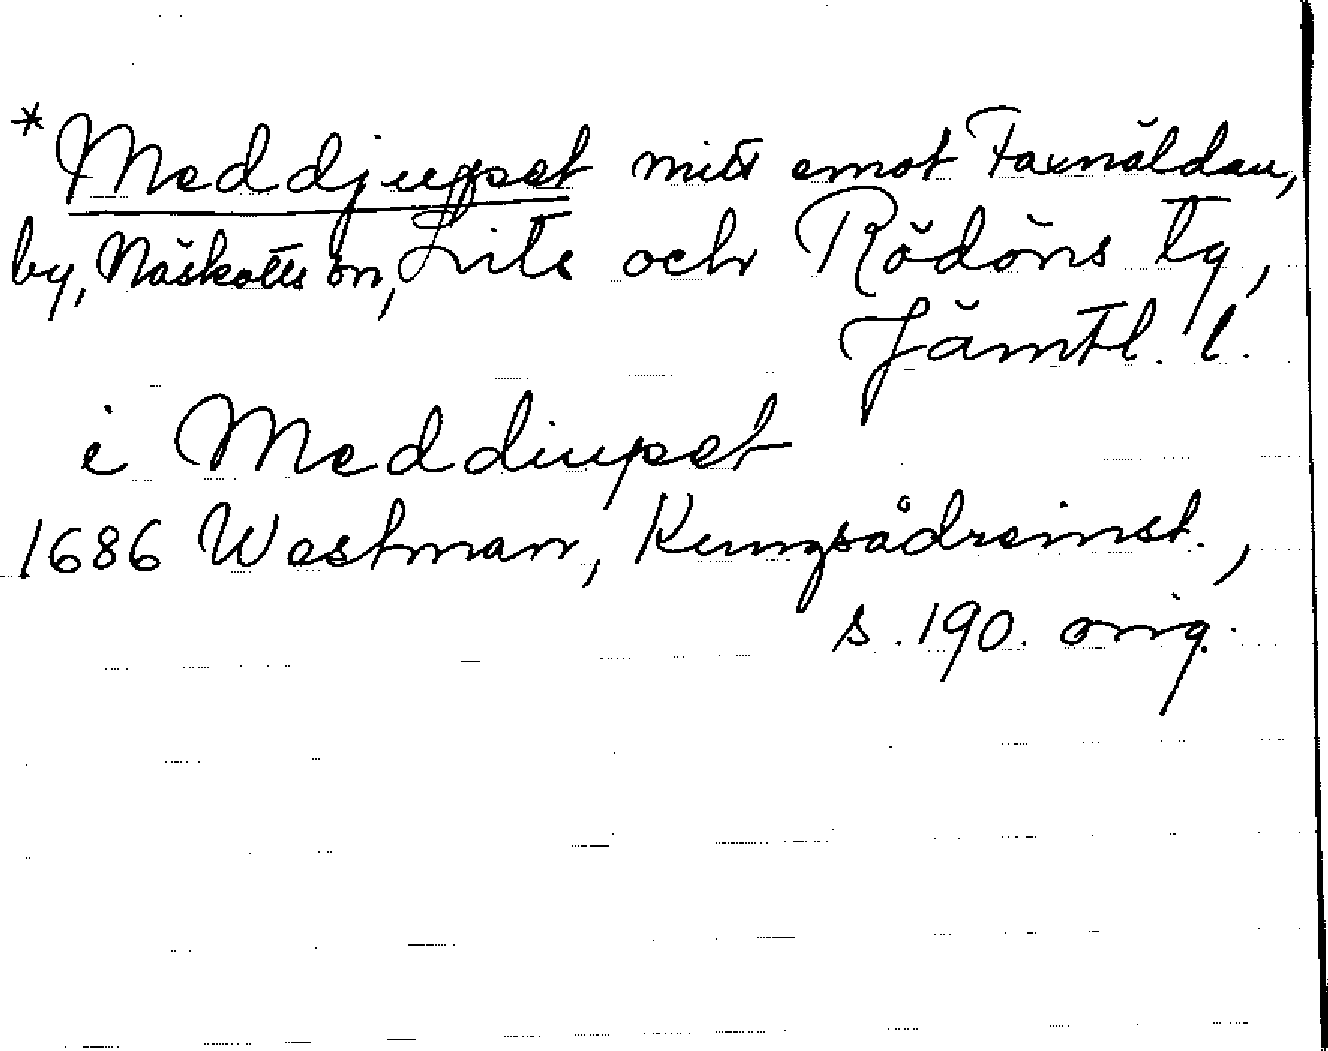 *Meddjupet mitt emot Faxnäldan,
by, Näskotts sn, Lits och Rödöns tg,
Jämtl. l.
i Meddiupet
1686 Westman, Kungsådreinst.,
s. 190. orig.